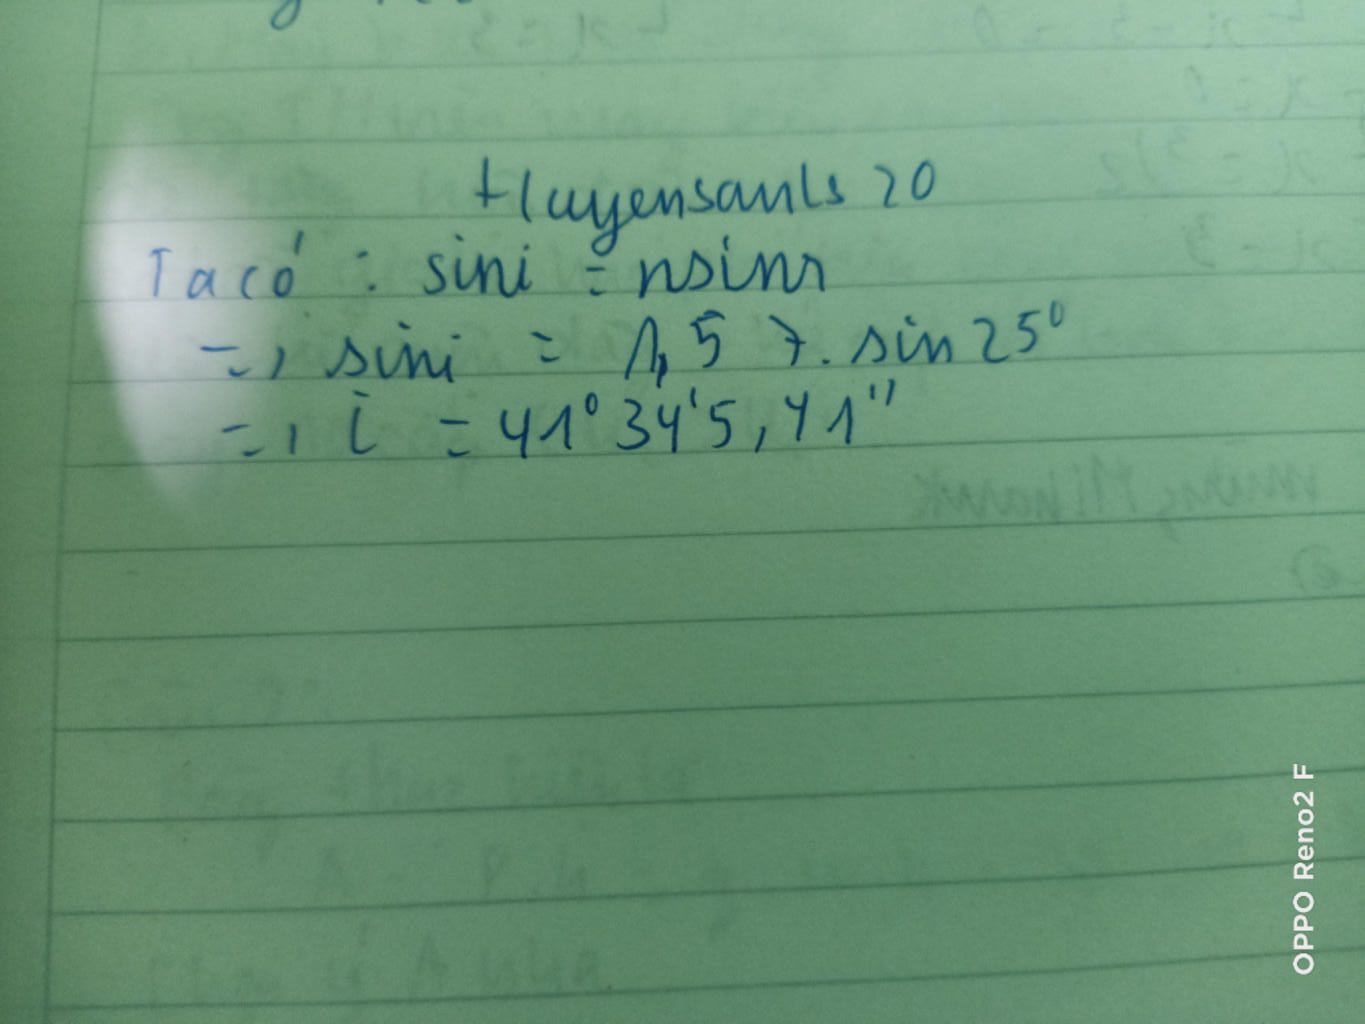 tluyensauls 20
Ta có : sini = nsinr
=> sini = 1,57. sin 25°
=> i = 41° 34' 5,41"
OPPO Reno2 F